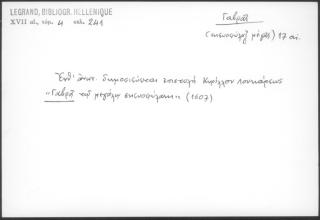 LEGRAND, BIBLIOGR. HELLENIQUE
XVII αἰ, τόμ. 4 σελ. 241
Γαβρᾶς
(σκευοφύλαξ μέγας) 17 αἰ.
Ἐνθ' ἀνωτ. δημοσιεύεται ἐπιστολὴ Κυρίλλου Λουκάρεως
"Γαβρᾷ τῷ μεγάλῳ σκευοφύλακι" (1607)